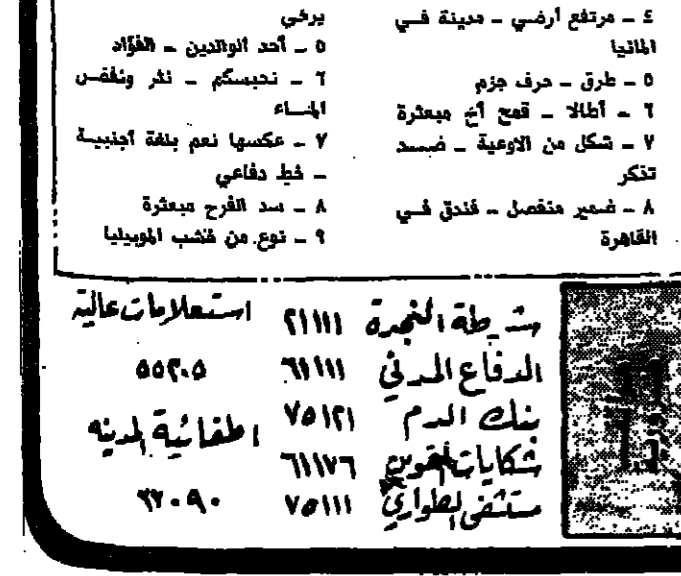 ٤ ـ مرتفع أرضي ـ مدينة فـي
المانيا
٥ ـ طرق ـ حرف جزم
٦ ـ أطالا ـ قمح أخ مبعثرة
٧ ـ شكل من الاوعية ـ ضـد
تذكر
٨ ـ ضمير منفصل ـ فندق فـي
القاهرة
يرخي
٥ ـ أحد الوالدين ـ الفؤاد
٦ ـ نحبسكم ـ نثر ونفض
المـاء
٧ ـ عكسها نعم بلغة أجنبيـة
ـ خط دفاعي
٨ ـ سد الفرح مبعثرة
٩ ـ نوع من خشب الموبيليا
شرطة النجدة ٢١١١١
الدفاع المدني ٦١١١١
بنك الدم ٧٥١٢١
شكايات التموين ٦١١٧٦
مستشفى الطواريء ٧٥١١١
استعلامات عاليه
٥٥٢٠٥
اطفائية المدينه
٢٢٠٩٠